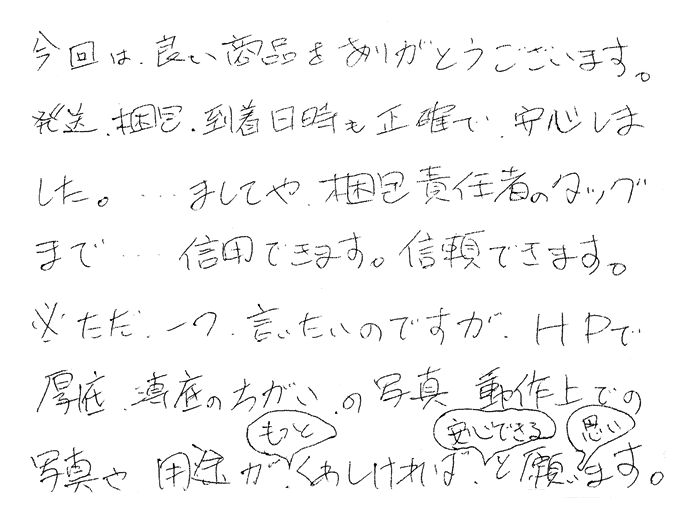 今回は、良い商品をありがとうございます。
発送、梱包、到着日時も正確で、安心しま
した。…ましてや、梱包責任者のタッグ
まで… 信用できます。信頼できます。
※ただ、一つ、言いたいのですが、HPで
厚底、薄底のちがい、の写真 動作上での
もっと 安心できる 思い
写真や 用途が、くわしければ、と願います。